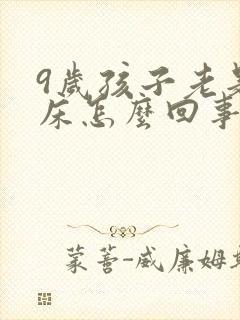 9歲孩子老是
床怎麼回事
蒙蓍-威廉姆斯